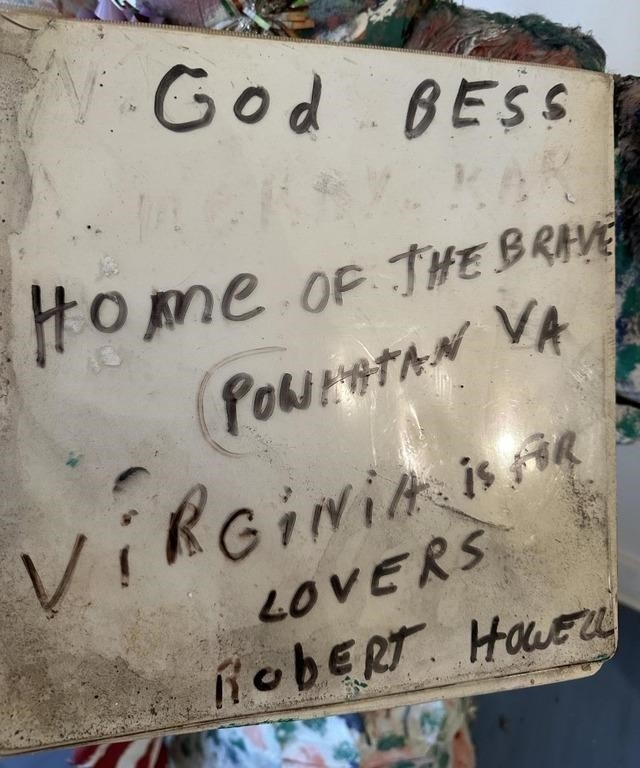 God BESS
HOme OF THE BRAVE
POWHATAN VA
ViRGiNiA is FOR
LOVERS
RobERT. HOWELL